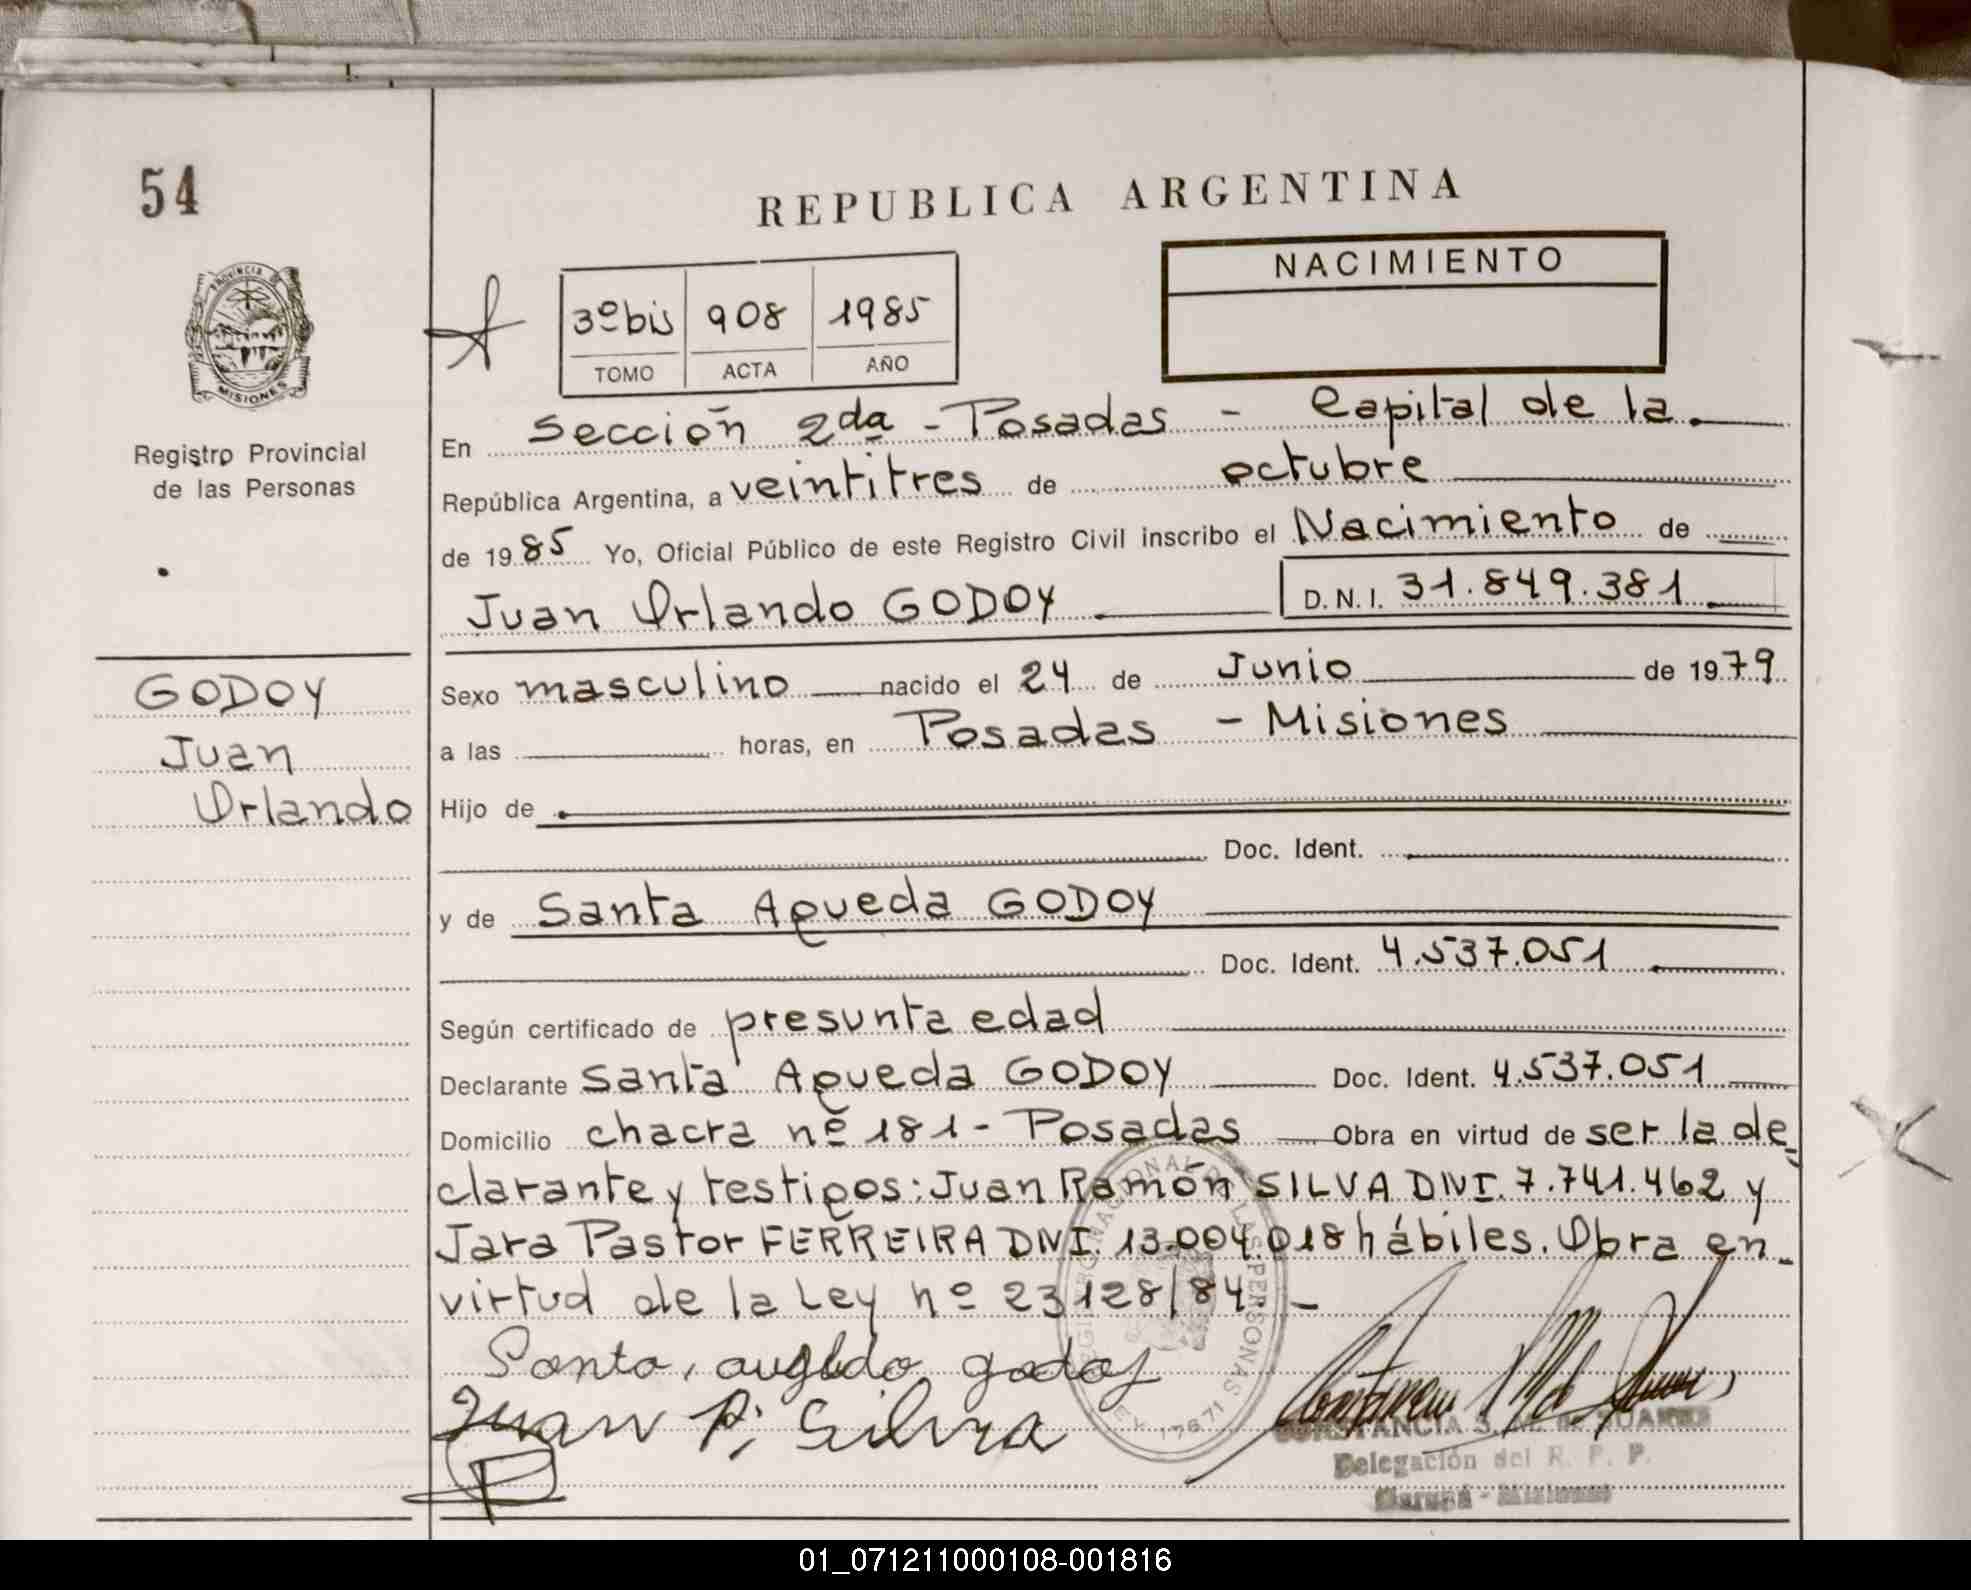 54
REPUBLICA ARGENTINA
PROVINCIA DE
MISIONES
Registro Provincial
de las Personas
3º bis 908 1985
TOMO ACTA AÑO
NACIMIENTO
En Sección 2da - Posadas - Capital de la
República Argentina, a veintitres de octubre
de 1985 Yo, Oficial Público de este Registro Civil inscribo el Nacimiento de
Juan Orlando GODOY D.N.I. 31.849.381
GODOY
Juan
Orlando
Sexo masculino nacido el 24 de Junio de 1979
a las horas, en Posadas - Misiones
Hijo de
Doc. Ident.
y de Santa Agueda GODOY
Doc. Ident. 4.537.051
Según certificado de presunta edad
Declarante Santa Agueda GODOY Doc. Ident. 4.537.051
Domicilio chacra nº 181 - Posadas Obra en virtud de ser la de
clarante y testigos: Juan Ramón SILVA DNI. 7.741.462 y
Jara Pastor FERREIRA DNI. 13.004.018 hábiles. Obra en
virtud de la Ley nº 23128/84 -
Santa, augeda godoy
Juan R; Silvra
REGISTRO NACIONAL DE LAS PERSONAS
LEY 17671
CONSTANCIA S. DE
Delegación del R. P. P.
Garupá - Misiones
01_071211000108-001816